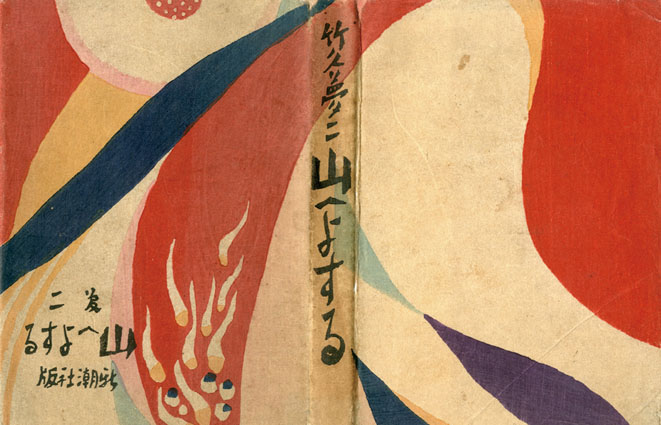 竹久夢二 山へよする
夢二
山へよする
新潮社版